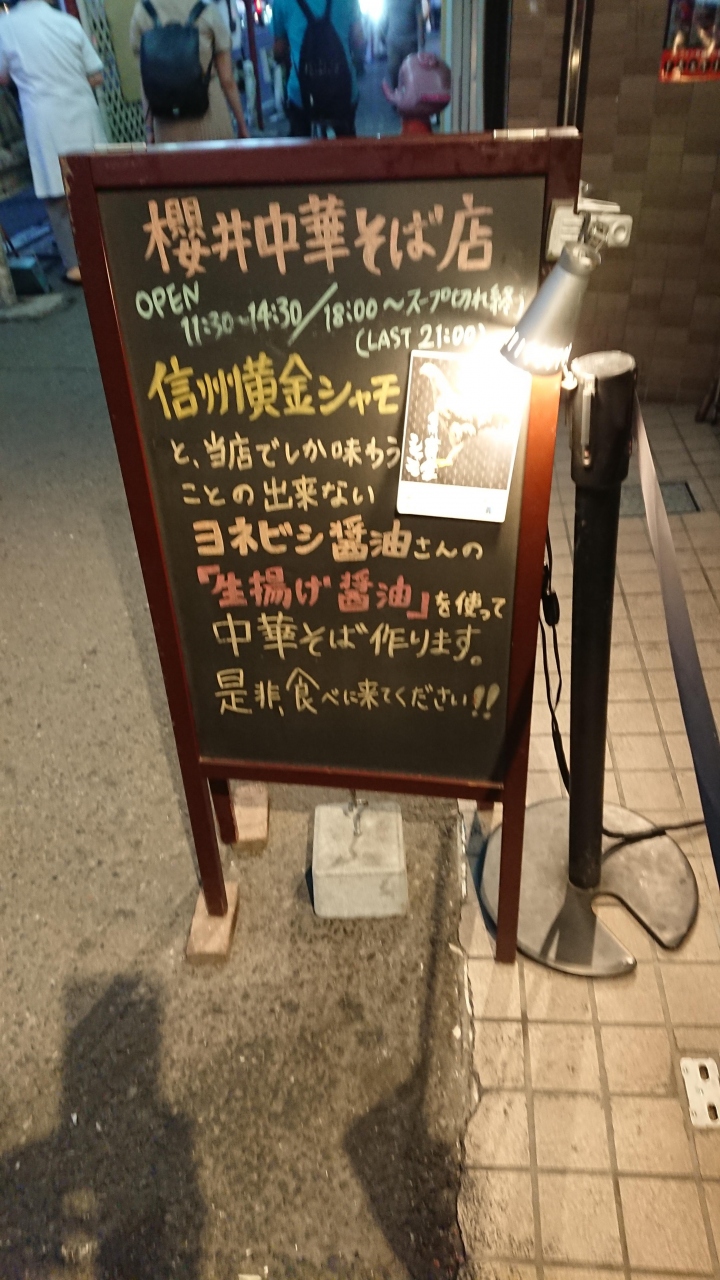 櫻井中華そば店
OPEN
11:30~14:30/18:00~スープ切れ終
(LAST 21:00)
信州黄金シャモ
と、当店でしか味わう
ことの出来ない
ヨネビシ醤油さんの
「生揚げ醤油」を使って
中華そば作ります。
是非、食べに来てください!!